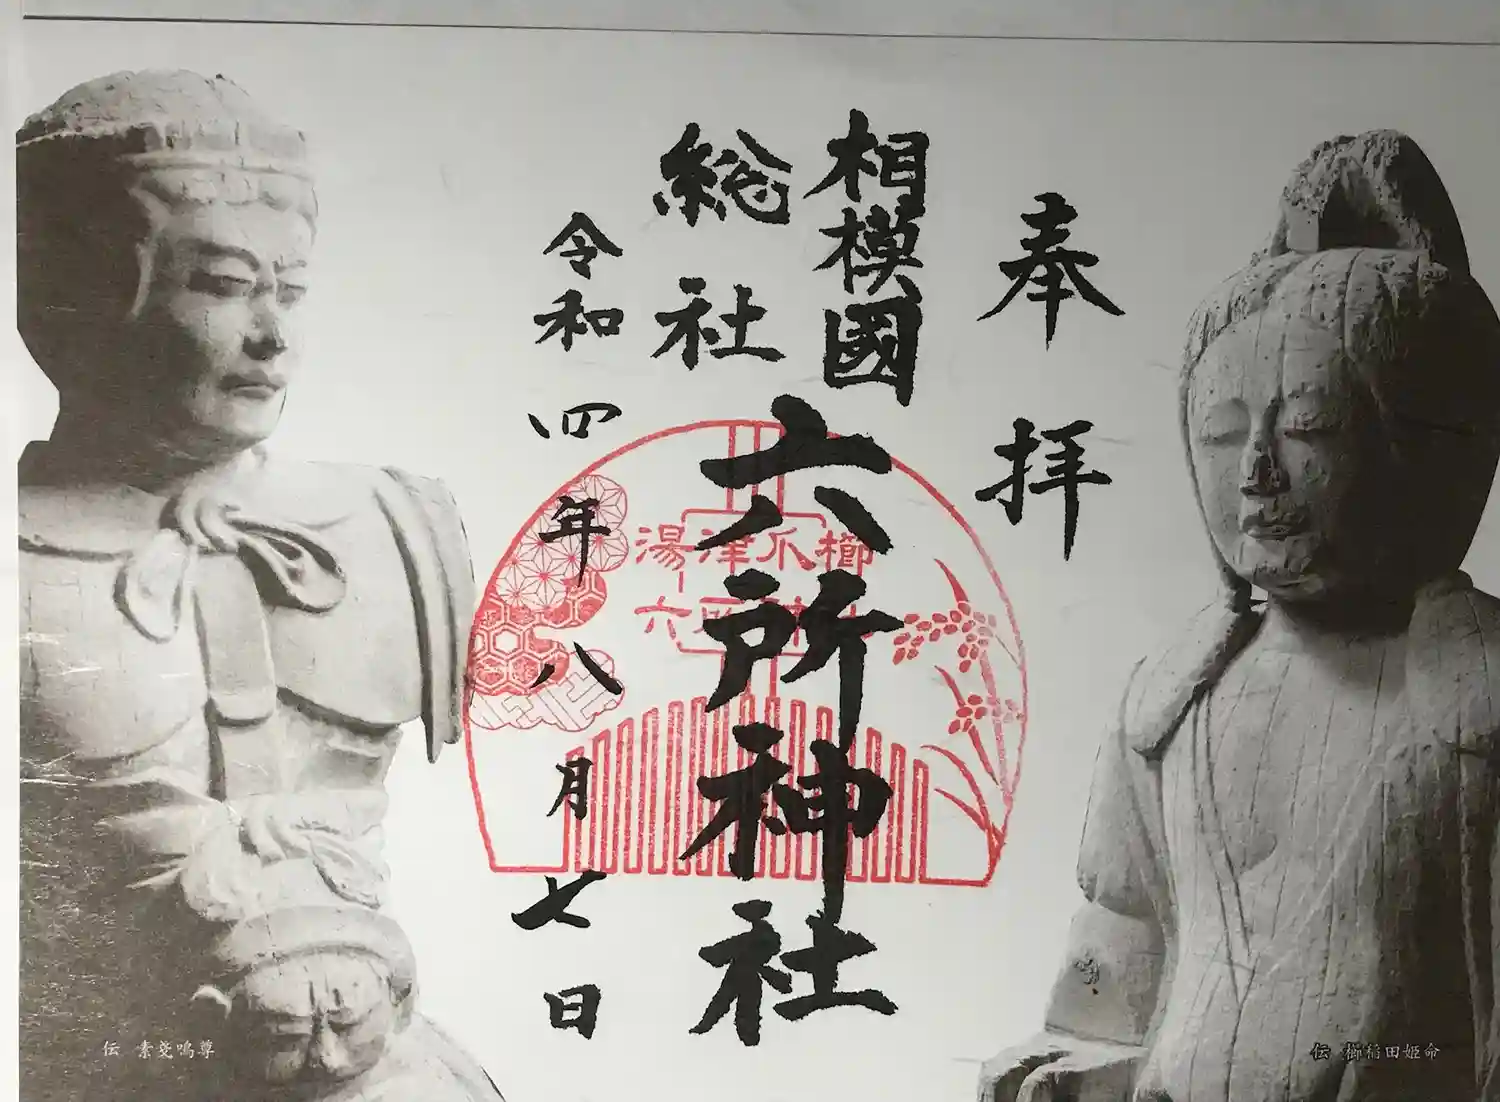 奉拝
相模國
総社
六所神社
令和四年八月七日
湯津爪櫛
六所神社
伝 素戔嗚尊
伝 櫛稲田姫命